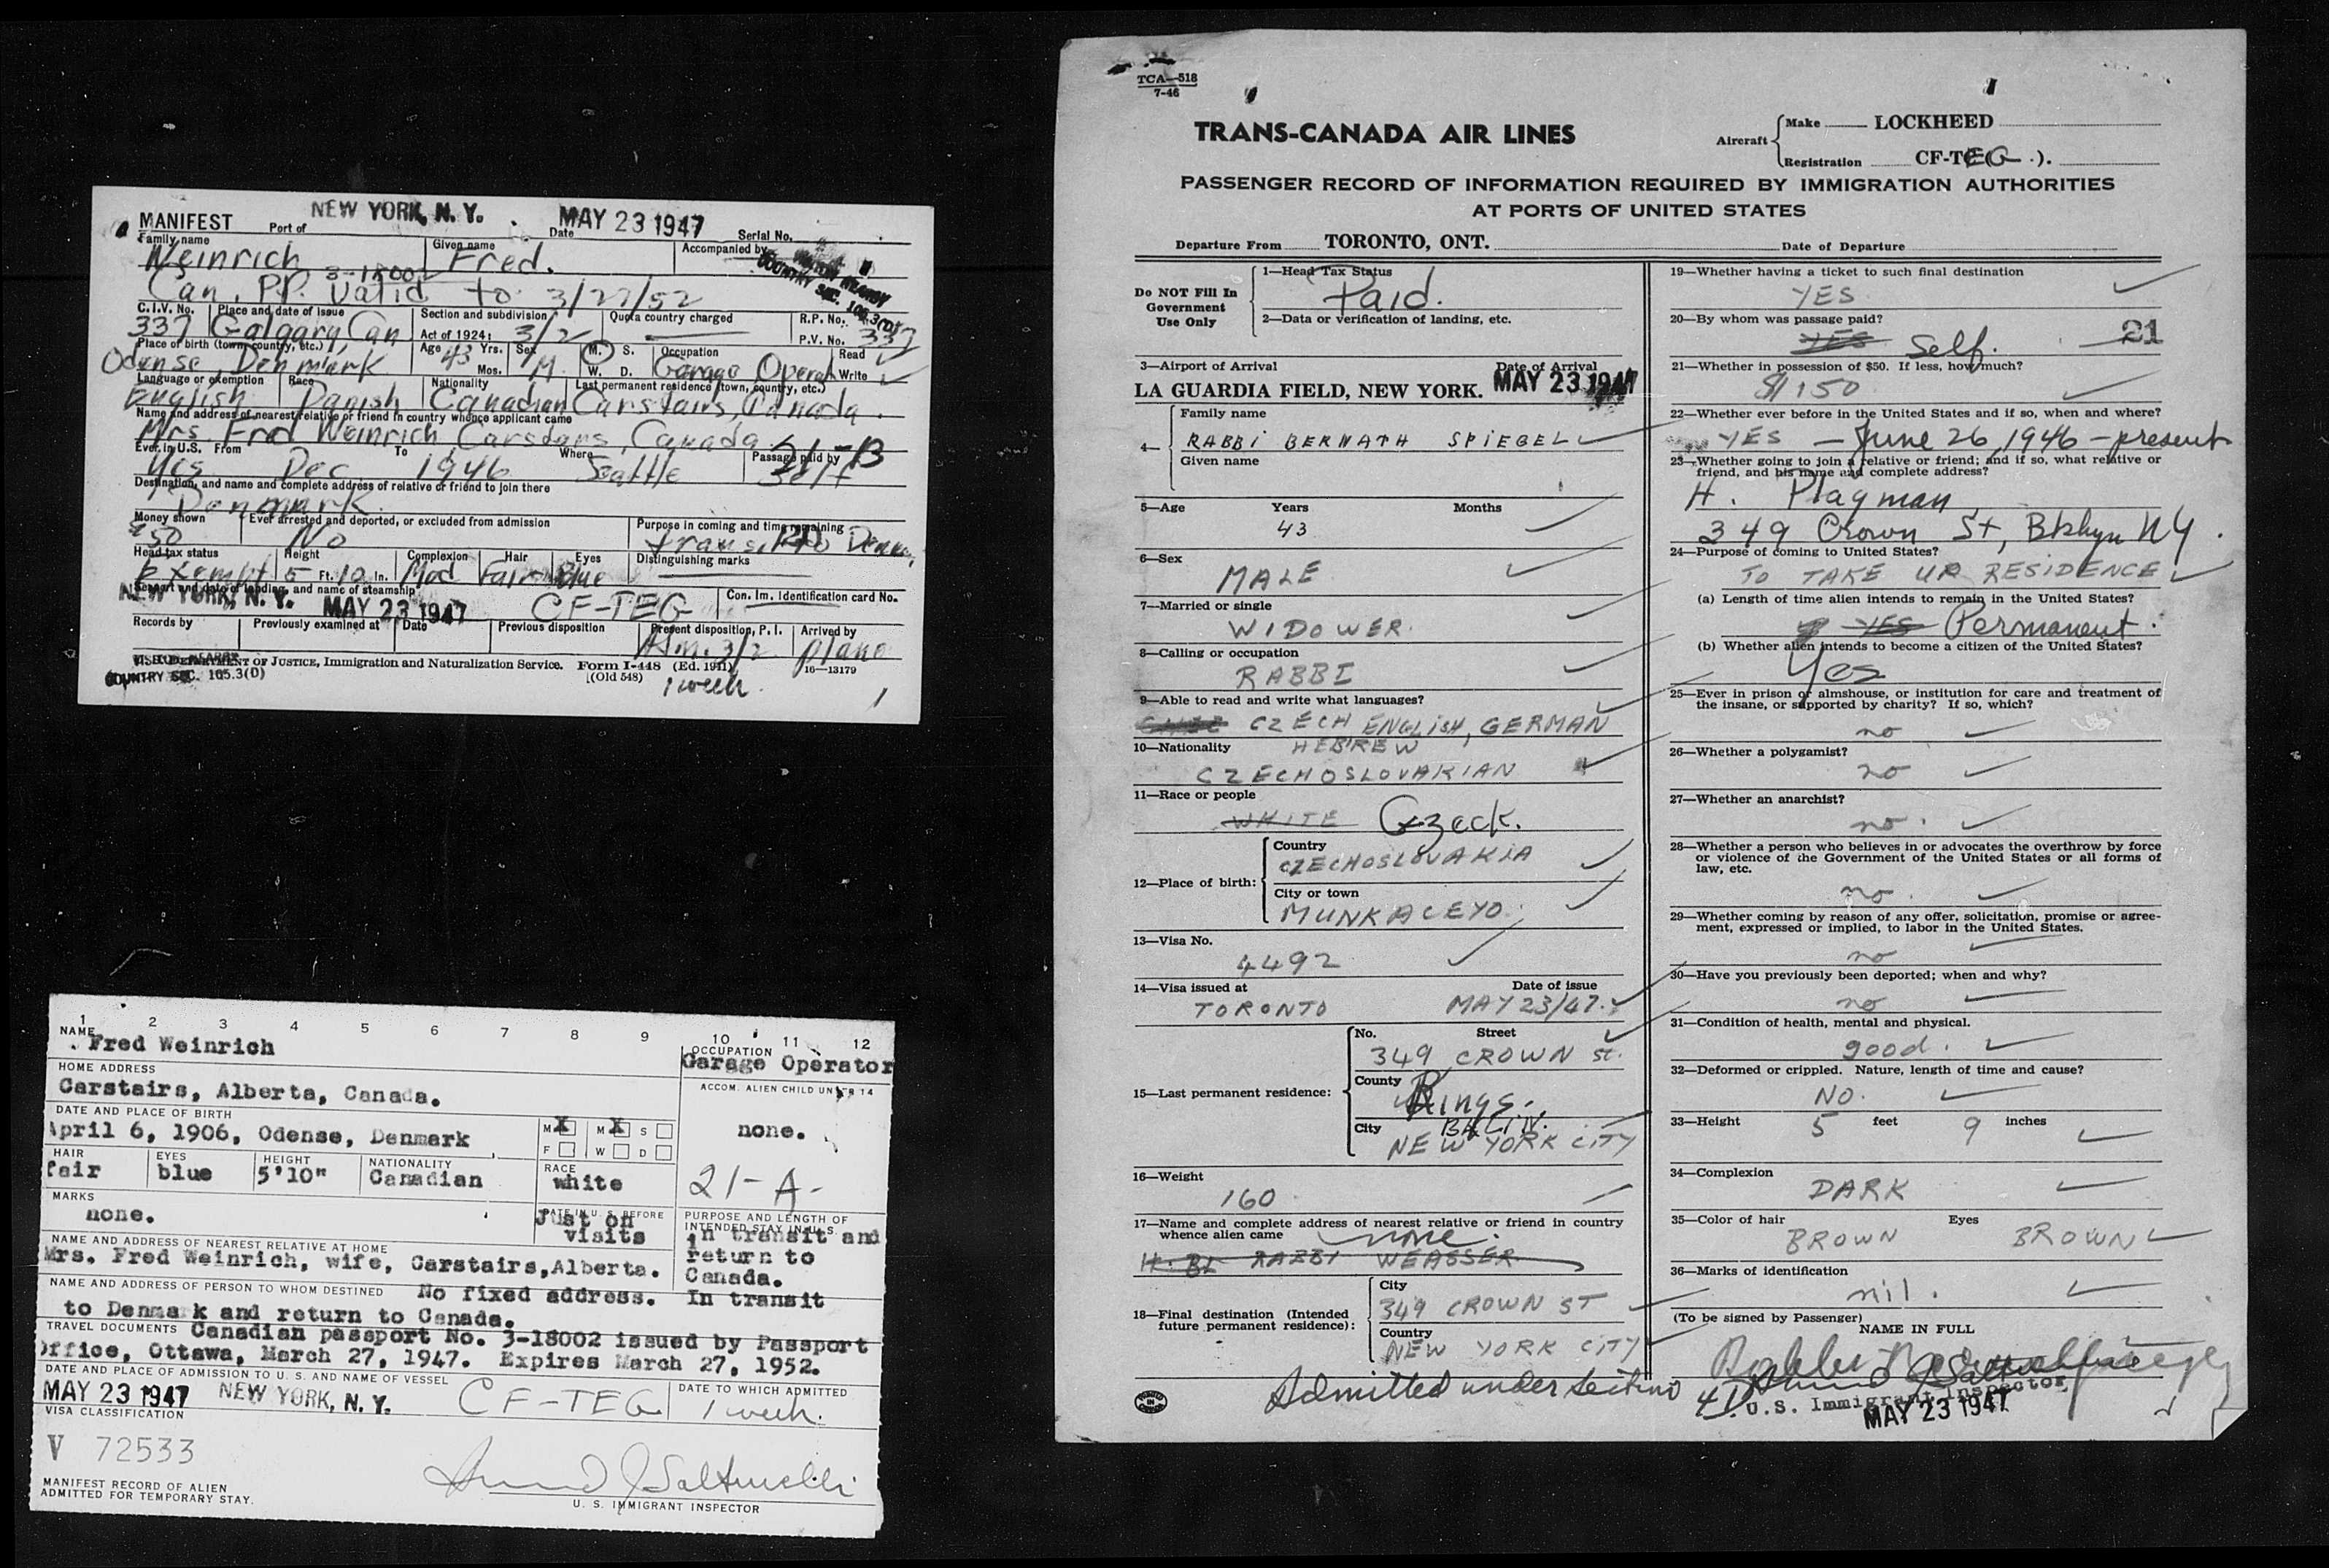 MANIFEST Port of NEW YORK, N. Y. Date MAY 23 1947 Serial No.
Family name Given name Accompanied by
Weinrich Fred.
3-18002
Can. P.P. Valid to 3/27/52
COUNTRY SEC. 105.3(D)
C.I.V. No. Place and date of issue Section and subdivision Quota country charged R.P. No.
337 Calgary, Can Act of 1924: 3/2 P.V. No. 337
Place of birth (town, country, etc.) Age Yrs. Sex M. S. Occupation Read
Odense, Denmark 43 Mos. M. W. D. Garage Operat Write
Language or exemption Race Nationality Last permanent residence (town, country, etc.)
English Danish Canadian Carstairs, Canada.
Name and address of nearest relative or friend in country whence applicant came
Mrs. Fred Weinrich Carstairs, Canada. 21-B
Ever in U.S. From To Where Passage paid by
Yes Dec 1946 Seattle Self
Destination, and name and complete address of relative or friend to join there
Denmark.
Money shown Ever arrested and deported, or excluded from admission Purpose in coming and time remaining
$50 No transit to
Head tax status Height Complexion Hair Eyes Distinguishing marks
Exempt 5 Ft. 10 In. Med Fair Blue
Seaport and date of landing, and name of steamship Con. Im. Identification card No.
NEW YORK, N. Y. MAY 23 1947 CF-TEG
Records by Previously examined at Date Previous disposition Present disposition, P. I. Arrived by
Adm. 3/2 plane
U. S. DEPARTMENT OF JUSTICE, Immigration and Naturalization Service. Form I-448 (Ed. 1941) 16—13179
COUNTRY SEC. 105.3(D) (Old 548) 1 week. 1
1 2 3 4 5 6 7 8 9 10 11 12
NAME OCCUPATION
Fred Weinrich Garage Operator
HOME ADDRESS ACCOM. ALIEN CHILD UNDER 14
Carstairs, Alberta, Canada.
DATE AND PLACE OF BIRTH M X M X S
April 6, 1906, Odense, Denmark F W D none.
HAIR EYES HEIGHT NATIONALITY RACE
fair blue 5'10" Canadian white 21-A-
MARKS DATE IN U. S. BEFORE PURPOSE AND LENGTH OF INTENDED STAY IN U. S.
none. Just on visits in transit and
NAME AND ADDRESS OF NEAREST RELATIVE AT HOME return to
Mrs. Fred Weinrich, wife, Carstairs,Alberta. Canada.
NAME AND ADDRESS OF PERSON TO WHOM DESTINED No fixed address. In transit
to Denmark and return to Canada.
TRAVEL DOCUMENTS Canadian passport No. 3-18002 issued by Passport
Office, Ottawa, March 27, 1947. Expires March 27, 1952.
DATE AND PLACE OF ADMISSION TO U. S. AND NAME OF VESSEL DATE TO WHICH ADMITTED
MAY 23 1947 NEW YORK, N. Y. CF-TEG 1 week.
VISA CLASSIFICATION
V 72533
MANIFEST RECORD OF ALIEN
ADMITTED FOR TEMPORARY STAY.
U. S. IMMIGRANT INSPECTOR
TCA—518
7-46
TRANS-CANADA AIR LINES
Aircraft Make LOCKHEED
Registration CF-TEG
PASSENGER RECORD OF INFORMATION REQUIRED BY IMMIGRATION AUTHORITIES
AT PORTS OF UNITED STATES
Departure From TORONTO, ONT. Date of Departure
Do NOT Fill In Government Use Only
1—Head Tax Status
Paid.
2—Data or verification of landing, etc.
3—Airport of Arrival Date of Arrival
LA GUARDIA FIELD, NEW YORK. MAY 23 1947
4— Family name
RABBI BERNATH SPIEGEL
Given name
5—Age Years Months
43
6—Sex
MALE
7—Married or single
WIDOWER.
8—Calling or occupation
RABBI
9—Able to read and write what languages?
CZECH ENGLISH, GERMAN
HEBREW
10—Nationality
CZECHOSLOVAKIAN
11—Race or people
WHITE Czeck.
12—Place of birth: Country
CZECHOSLOVAKIA
City or town
MUNKACEYO
13—Visa No.
4492
14—Visa issued at Date of issue
TORONTO MAY 23/47.
15—Last permanent residence: No. Street
349 CROWN St.
County
Kings.
City BKLYN.
NEW YORK CITY
16—Weight
160
17—Name and complete address of nearest relative or friend in country
whence alien came none.
RABBI WEASSER
18—Final destination (Intended future permanent residence): City
349 CROWN ST
Country
NEW YORK CITY
19—Whether having a ticket to such final destination
YES
20—By whom was passage paid?
YES Self. 21
21—Whether in possession of $50. If less, how much?
$150
22—Whether ever before in the United States and if so, when and where?
YES — June 26, 1946 — present
23—Whether going to join a relative or friend; and if so, what relative or
friend, and his name and complete address?
H. Plagman
349 Crown St, Bklyn NY.
24—Purpose of coming to United States?
TO TAKE UP RESIDENCE
(a) Length of time alien intends to remain in the United States?
YES Permanent.
(b) Whether alien intends to become a citizen of the United States?
Yes
25—Ever in prison or almshouse, or institution for care and treatment of
the insane, or supported by charity? If so, which?
no
26—Whether a polygamist?
no
27—Whether an anarchist?
no.
28—Whether a person who believes in or advocates the overthrow by force
or violence of the Government of the United States or all forms of
law, etc.
no.
29—Whether coming by reason of any offer, solicitation, promise or agree-
ment, expressed or implied, to labor in the United States.
no
30—Have you previously been deported; when and why?
no
31—Condition of health, mental and physical.
good.
32—Deformed or crippled. Nature, length of time and cause?
NO.
33—Height 5 feet 9 inches
34—Complexion
DARK
35—Color of hair Eyes
BROWN BROWN
36—Marks of identification
nil.
(To be signed by Passenger)
NAME IN FULL
Admitted under Section 4D
U.S. Immigrant Inspector
MAY 23 1947